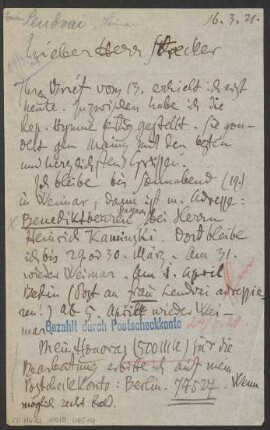 Lendvai, Weimar 16.3.21.
Lieber Herr Strecker
Ihren Brief vom 13. erhielt ich erst
heute. Inzwischen habe ich die
Rep. Hymne fertig gestellt. Sie
den mit den besten
und herzlichsten Grüssen.
Ich bleibe bis Sonnabend (19.)
in Weimar, dann ist m. Adresse:
Benediktbeuren bei Herrn
Bayern
Heinrich Kaminski. Dort bleibe
ich bis 29 od 30. März. Am 31.
wieder Weimar. Am 1. April
Berlin (Post an Frau Lendvai adressie-
ren!) ab 5. April wieder Wei-
mar
Bezahlt durch Postscheckkonto
Mein Honorar (500 M) für die
Bearbeitung erbitte ich auf mein
Postscheckkonto: Berlin. 77527. Wenn
möglich recht bald.